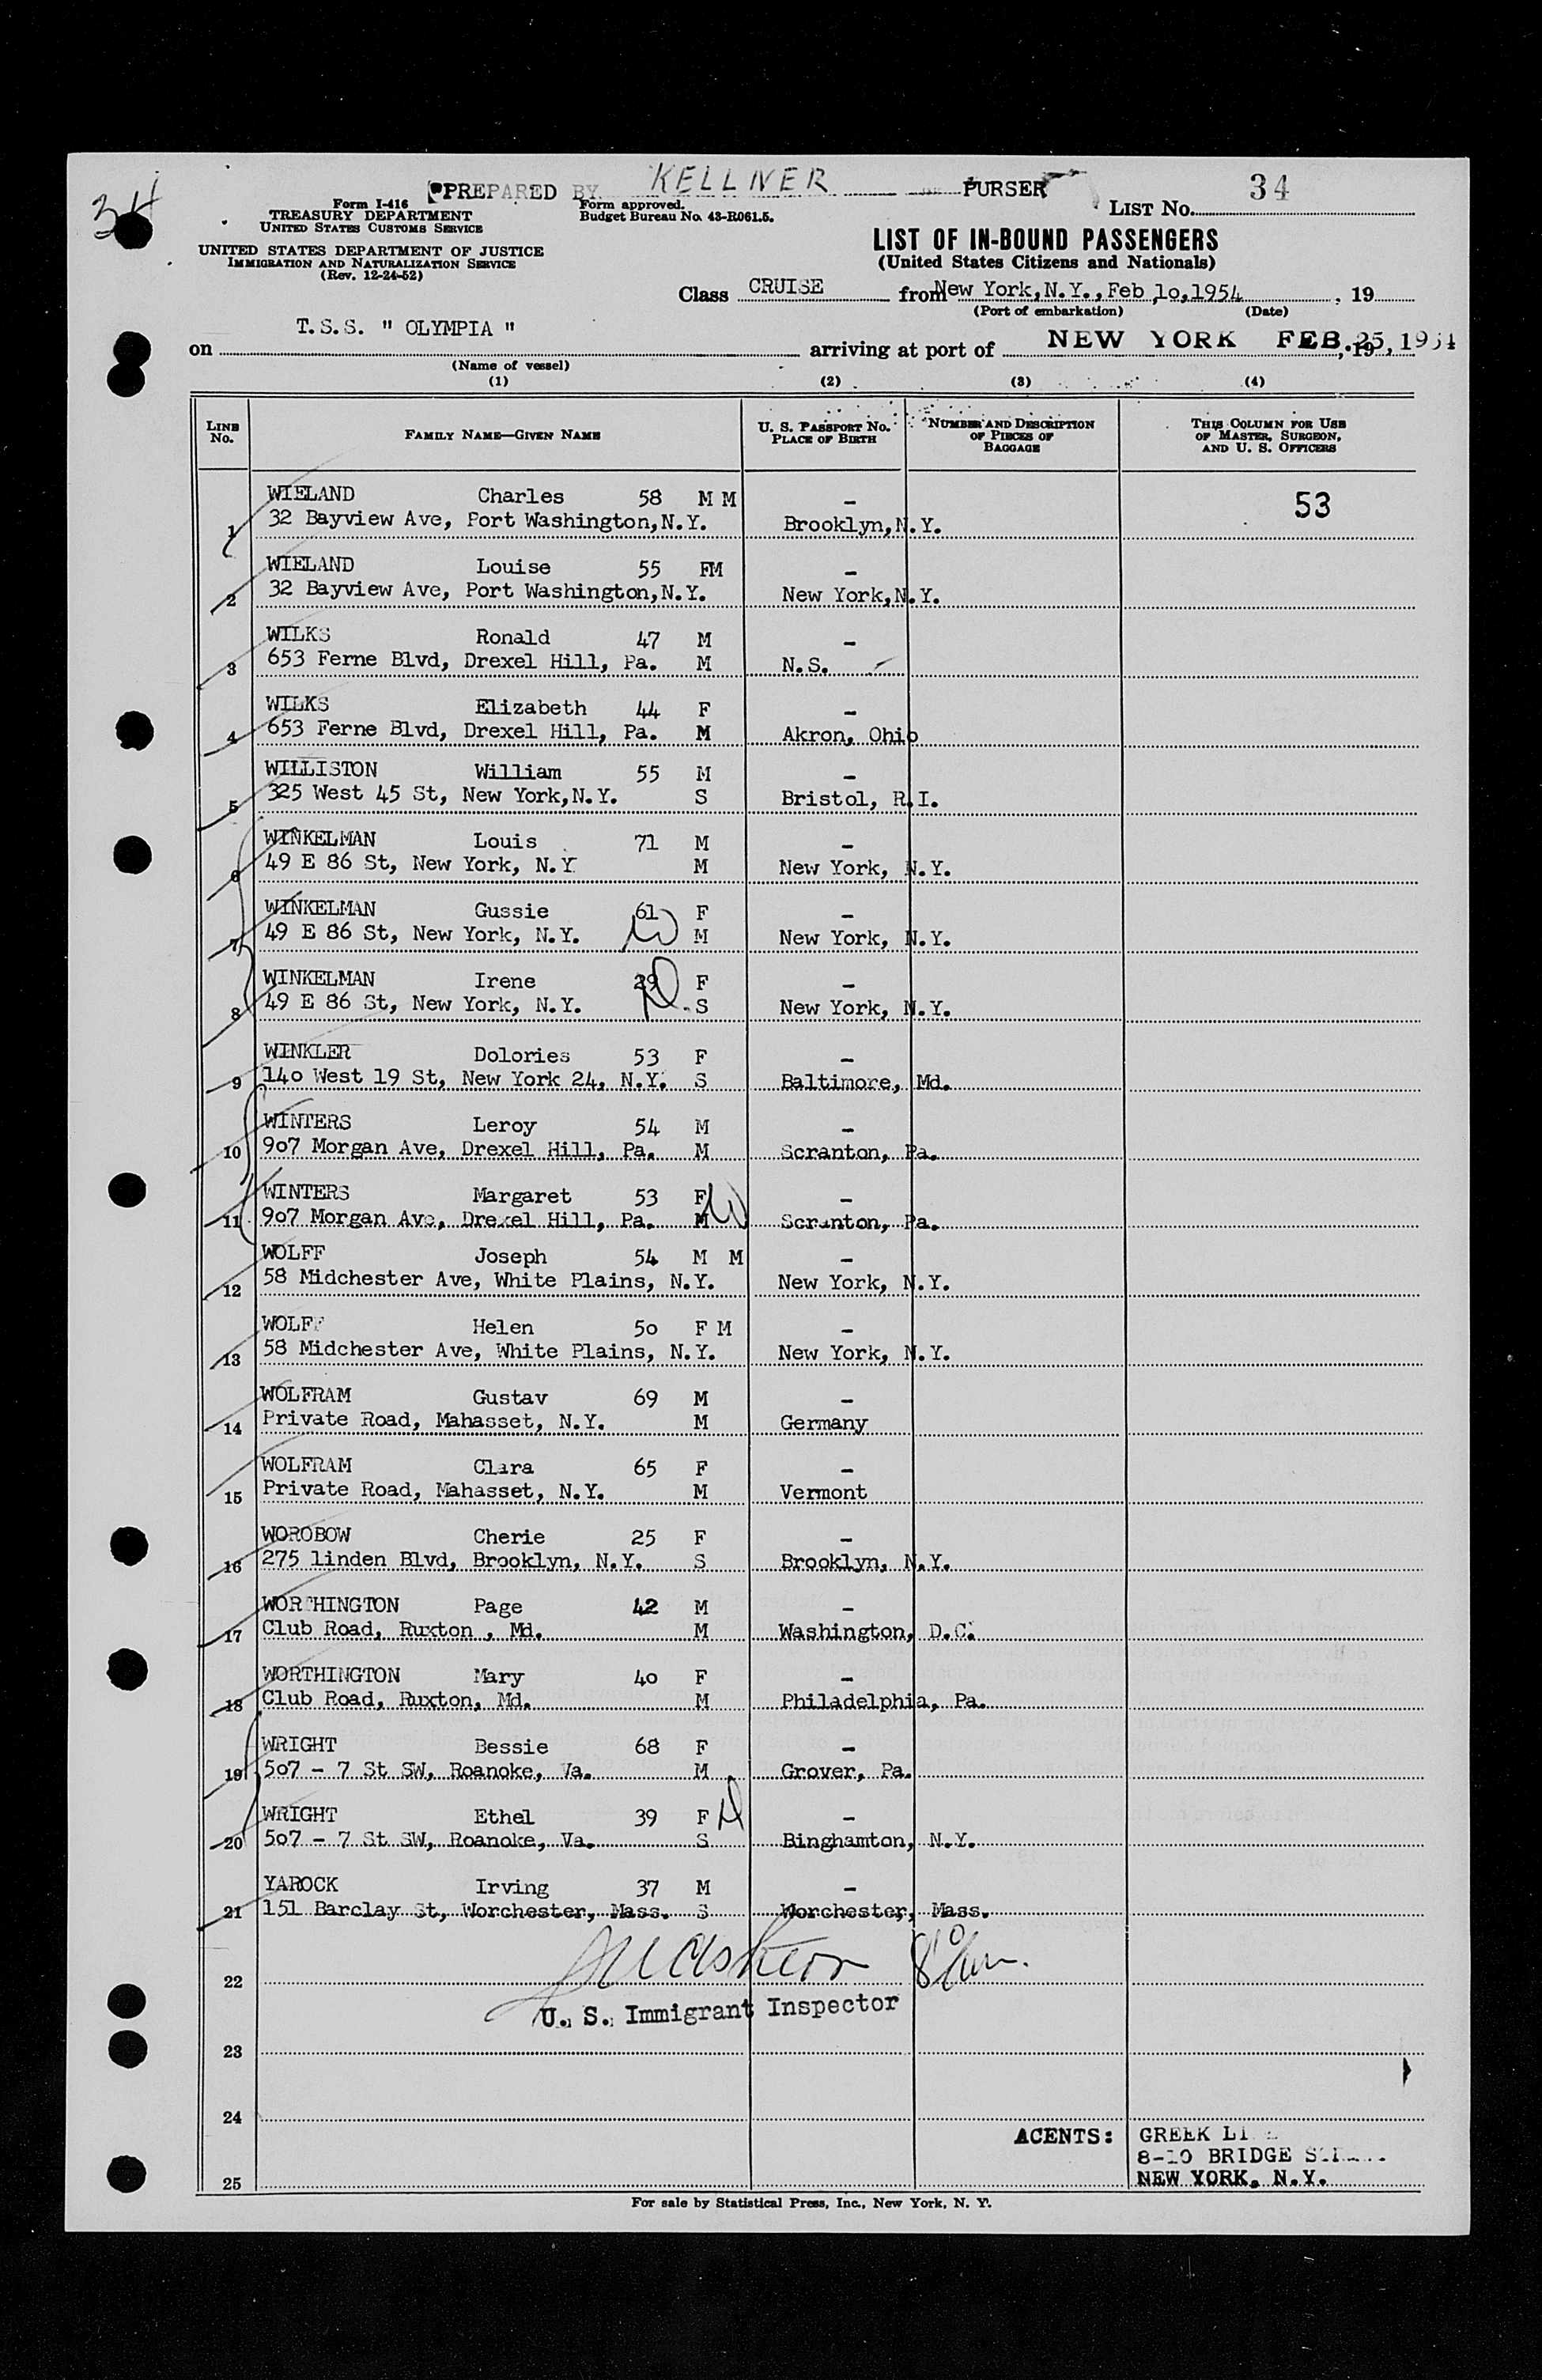 34
PREPARED BY KELLNER PURSER
Form I-416
TREASURY DEPARTMENT
UNITED STATES CUSTOMS SERVICE
Form approved.
Budget Bureau No. 43-R061.5.
LIST No. 34
UNITED STATES DEPARTMENT OF JUSTICE
IMMIGRATION AND NATURALIZATION SERVICE
(Rev. 12-24-52)
LIST OF IN-BOUND PASSENGERS
(United States Citizens and Nationals)
Class CRUISE from New York, N.Y., Feb 1o, 1954, 19
(Port of embarkation) (Date)
on T.S.S. " OLYMPIA " arriving at port of NEW YORK FEB. 25, 1954, 19
(Name of vessel)
(1) (2) (3) (4)
LINE No. FAMILY NAME—GIVEN NAME U. S. PASSPORT NO. PLACE OF BIRTH NUMBER AND DESCRIPTION OF PIECES OF BAGGAGE THIS COLUMN FOR USE OF MASTER, SURGEON, AND U. S. OFFICERS
WIELAND Charles 58 M M - 53
1 32 Bayview Ave, Port Washington,N.Y. Brooklyn,N.Y.
WIELAND Louise 55 FM -
2 32 Bayview Ave, Port Washington,N.Y. New York,N.Y.
WILKS Ronald 47 M -
3 653 Ferne Blvd, Drexel Hill, Pa. M N.S.
WILKS Elizabeth 44 F -
4 653 Ferne Blvd, Drexel Hill, Pa. M Akron, Ohio
WILLISTON William 55 M -
5 325 West 45 St, New York,N.Y. S Bristol, R.I.
WINKELMAN Louis 71 M -
6 49 E 86 St, New York, N.Y M New York, N.Y.
WINKELMAN Gussie 61 F -
7 49 E 86 St, New York, N.Y. M New York, N.Y.
WINKELMAN Irene 29 F -
8 49 E 86 St, New York, N.Y. S New York, N.Y.
WINKLER Dolories 53 F -
9 14o West 19 St, New York 24, N.Y. S Baltimore, Md.
WINTERS Leroy 54 M -
10 9o7 Morgan Ave, Drexel Hill, Pa. M Scranton, Pa.
WINTERS Margaret 53 F W -
11 9o7 Morgan Ave, Drexel Hill, Pa. M Scranton, Pa.
WOLFF Joseph 54 M M -
12 58 Midchester Ave, White Plains, N.Y. New York, N.Y.
WOLFF Helen 5o F M -
13 58 Midchester Ave, White Plains, N.Y. New York, N.Y.
WOLFRAM Gustav 69 M -
14 Private Road, Mahasset, N.Y. M Germany
WOLFRAM Clara 65 F -
15 Private Road, Mahasset, N.Y. M Vermont
WOROBOW Cherie 25 F -
16 275 linden Blvd, Brooklyn, N.Y. S Brooklyn, N.Y.
WORTHINGTON Page 42 M -
17 Club Road, Ruxton , Md. M Washington, D.C.
WORTHINGTON Mary 4o F -
18 Club Road, Ruxton, Md. M Philadelphia, Pa.
WRIGHT Bessie 68 F -
19 5o7 - 7 St SW, Roanoke, Va. M Grover, Pa.
WRIGHT Ethel 39 F -
20 5o7 - 7 St SW, Roanoke, Va. S Binghamton, N.Y.
YAROCK Irving 37 M -
21 151 Barclay St, Worchester, Mass. S Worchester, Mass.
22
U. S. Immigrant Inspector
23
24
AGENTS: GREEK LINE
8-10 BRIDGE
NEW YORK, N.Y.
25
For sale by Statistical Press, Inc., New York, N. Y.